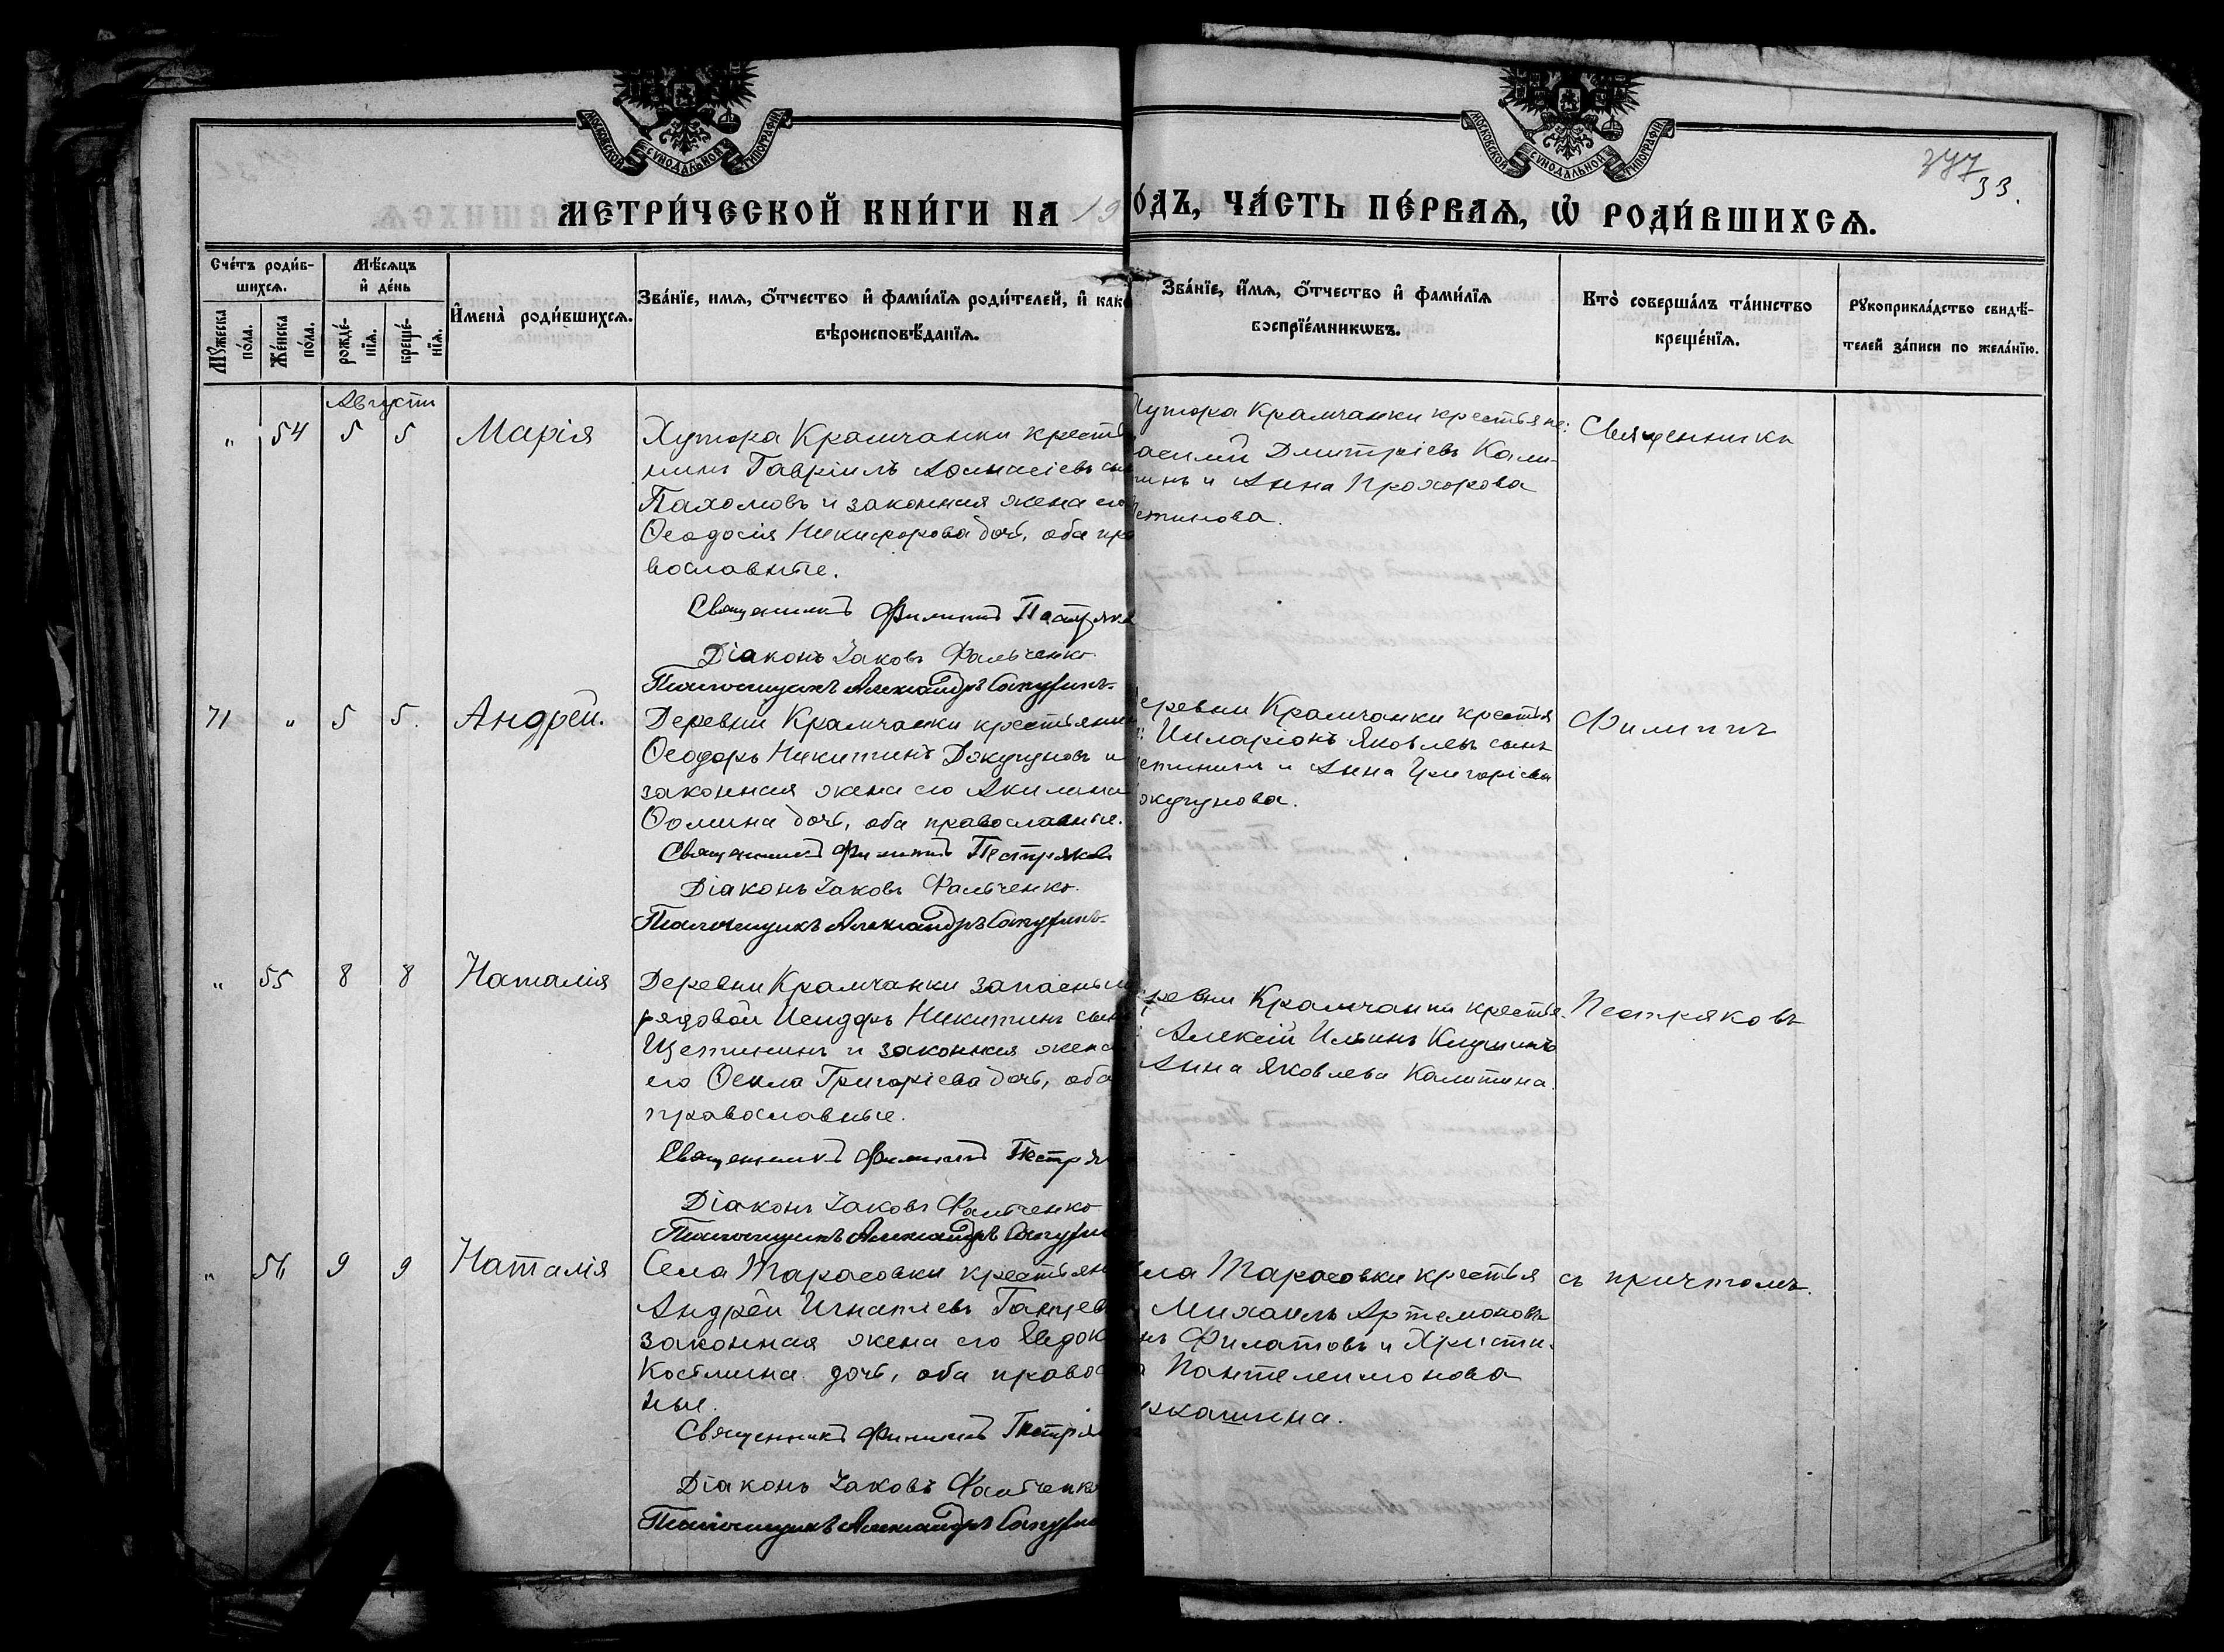 МОСКОВСКОЙ СУНОДАЛЬНОЙ ТИПОГРАФІИ
МОСКОВСКОЙ СУНОДАЛЬНОЙ ТИПОГРАФІИ
33.
МЕТРИ́ЧЕСКОЙ КНИ́ГИ НА 19
О́ДЪ, ЧА́СТЬ ПЕ́РВАѦ, Ѡ҆ РОДИ́ВШИХСѦ.
Сче́тъ роди́в-
шихсѧ.
Мѣ́сѧцъ
и҆ де́нь
Мꙋ́жеска
по́ла.
Же́нска
по́ла.
рожде́-
нїѧ.
креще́-
нїѧ.
И҆мена̀ роди́вшихсѧ.
Зва́нїе, имѧ, ѻ҆́тчество и҆ фами́лїѧ роди́телей, и҆ как
вѣроисповѣ́данїѧ.
Зва́нїе, и҆́мѧ, ѻ҆́тчество и҆ фами́лїѧ
воспрїе́мникѡвъ.
Кто̀ соверша́лъ та́инство
креще́нїѧ.
Рꙋкоприкла́дство свидѣ́-
телей за́писи по жела́нїю.
Августа
" 54 5 5 Марія
Хутора Крамчанки кресть
нинъ Гавріилъ Аѳанасіевъ сы
Пахомовъ и законная жена его
Ѳеодосія Никифорова дочь, оба пра
вославные.
Священникъ Филиппъ Пестряко
Діаконъ Іаковъ Фальченко
Псаломщикъ Александръ
Хутора Крамчанки крестьяне:
асилій Дмитріевъ Кали-
тинъ и Анна Прохорова
етинова.
Священникъ
71 " 5 5. Андрей.
Деревни Крамчанки крестьянин
Ѳеодоръ Никитинъ Докучуновъ и
законная жена его Акилина
Ѳомина дочь, оба православные.
Священникъ Филиппъ Пестряковъ
Діаконъ Іаковъ Фальченко.
Псаломщикъ Александръ
еревни Крамчанки крестья
Иларіонъ Яковлевъ сынъ
етининъ и Анна Григоріева
окучунова.
Филиппъ
" 55 8 8 Наталія
Деревни Крамчанки запасный
рядовой Исидоръ Никитинъ сынъ
Щетининъ и законная жена
его Ѳекла Григоріева дочь, оба
православные.
Священникъ Филиппъ Пестря
Діаконъ Іаковъ Фальченко
Псаломщикъ Александръ
ревни Крамчанки крестья.
Алексій Ильинъ
Анна Яковлева Калитина.
Пестряковъ
" 56 9 9 Наталія
Села Тарасовки крестьян
Андрей Игнатіевъ Ганцев
законная жена его Евдок
Косьмина дочь, оба правос
ные.
Священникъ Филиппъ Пестря
Діаконъ Іаковъ Фальченко
Псаломщикъ Александръ
ла Тарасовки крестья
Михаилъ Артемоновъ
нъ Филатовъ и Христи-
а Пантелеимонова
кашина.
съ причтомъ.